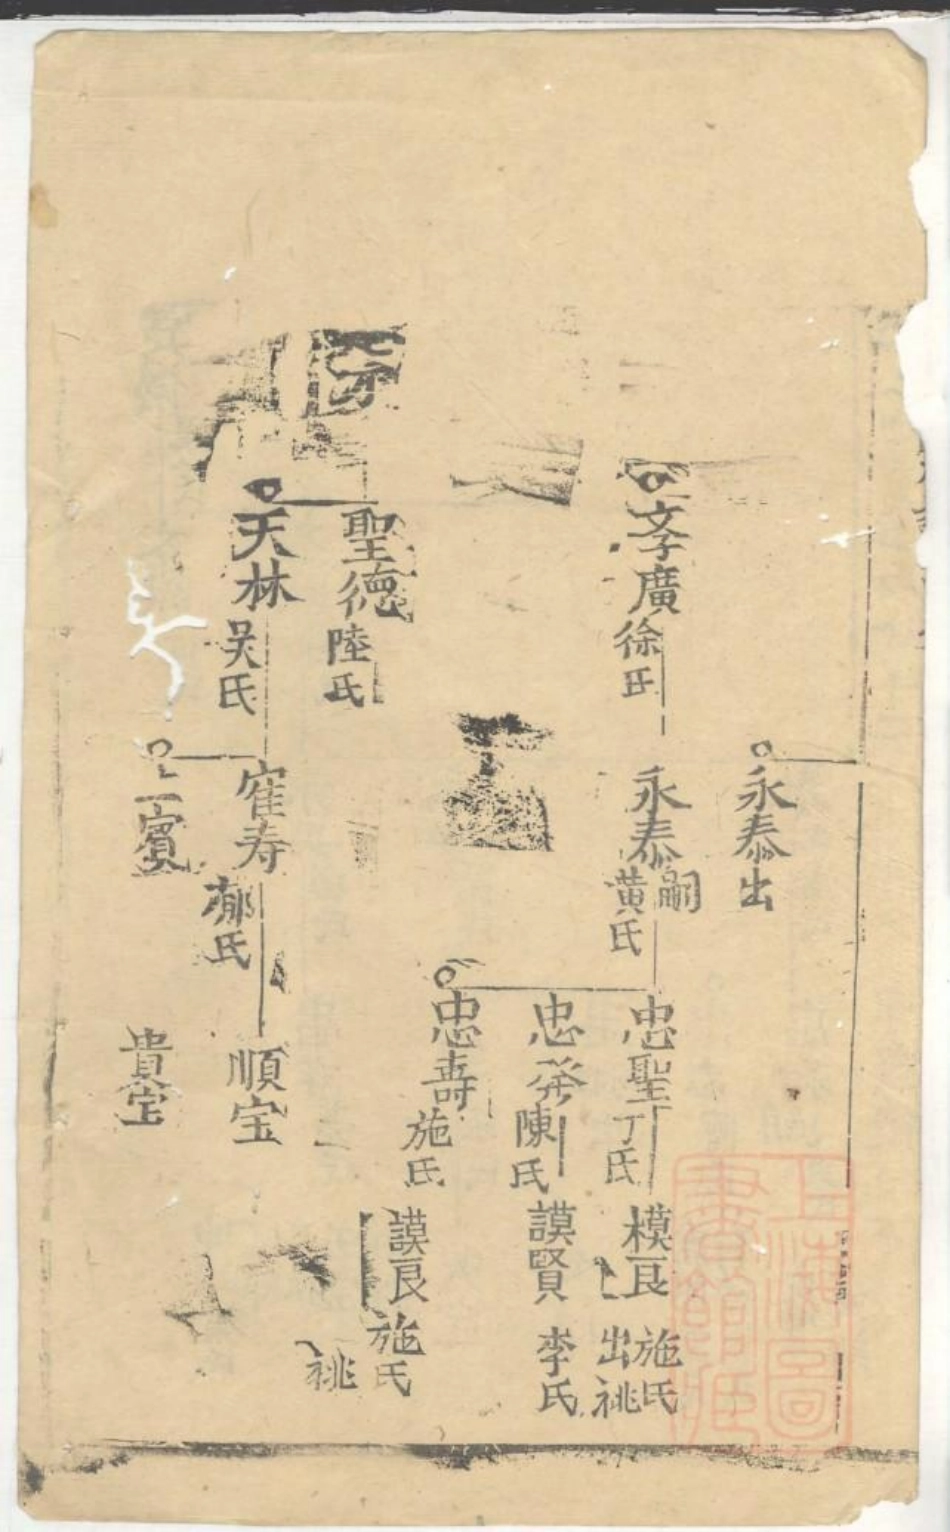 永泰出
文孝廣徐氏
永泰嗣黄氏
忠聖丁氏
模良施氏出祧
忠発陳氏
謨賢李氏
忠壽施氏
謨良施氏祧
聖德陸氏
天林吴氏
寉寿郁氏
順宝
二賓
貴宝
上海圖書館藏